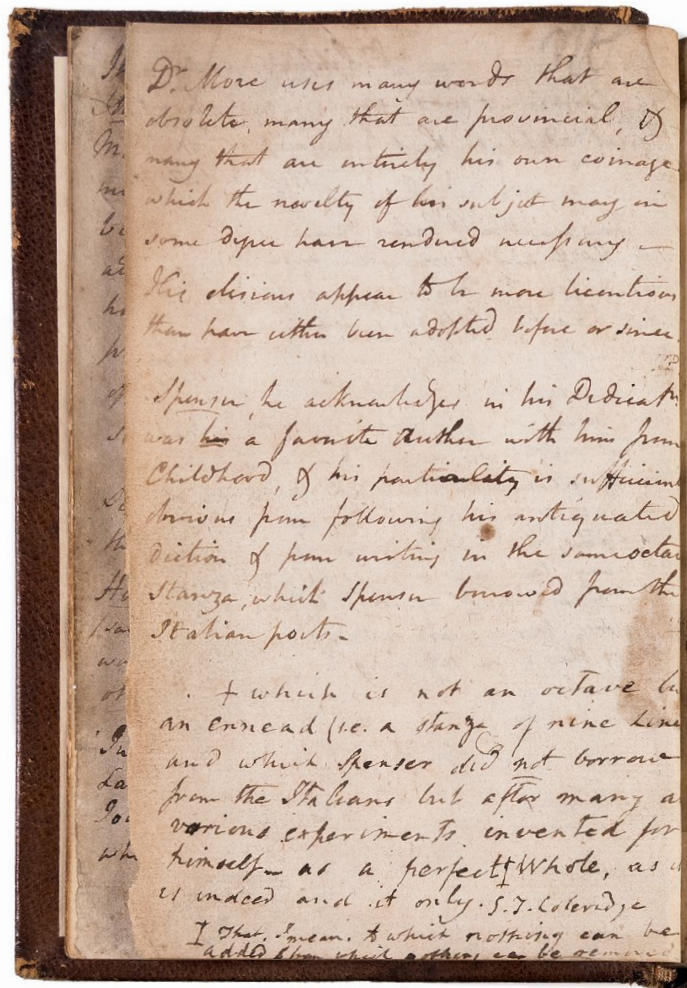 Dr. More uses many words that are
obsolete, many that are provincial, &
many that are entirely his own coinage
which the novelty of his subject may in
some degree have rendered necessary —
His elisions appear to be more licentious
than have either been adopted before or since.
Spenser, he acknowledges in his Dedicat
was his a favorite Author with him from
Childhood, & his particulality is sufficient
obvious from following his antiquated
diction & from writing in the same octa
Stanza, which Spenser borrowed from the
Italian poets -
+ which is not an octave bu
an ennead (i.e. a stanza of nine Line
and which Spenser did not borrow
from the Italians but after many a
various experiments invented for
himself — as a perfect ‡ Whole, as i
is indeed and it only. S. T. Coleridge
‡ That, I mean, to which nothing can be
added & from which nothing can be remov